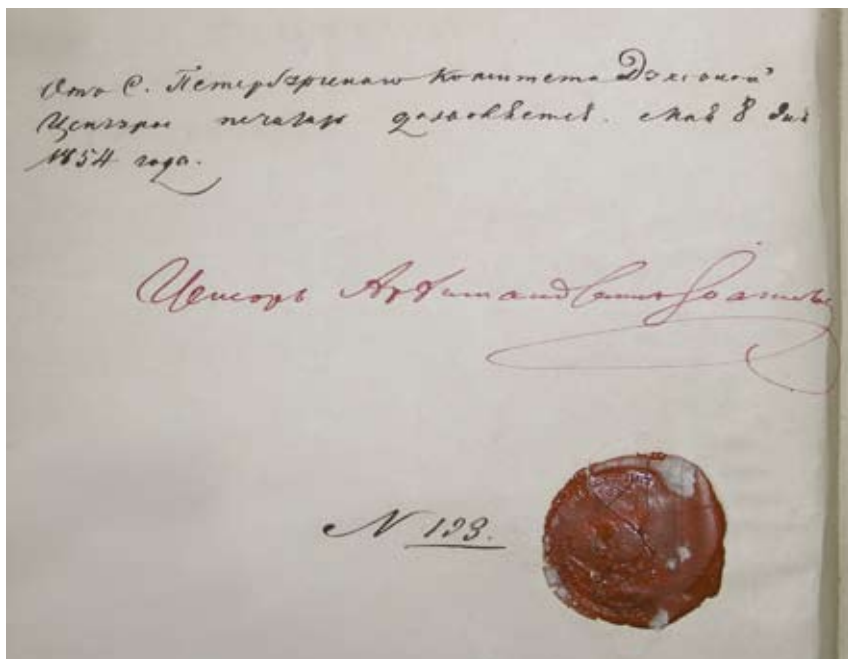 Отъ С. Петербургскаго Комитета Духовной
Цензуры печатать дозволяется. Мая 8 дня
1854 года.
Ценсоръ Архимандритъ
N 193.